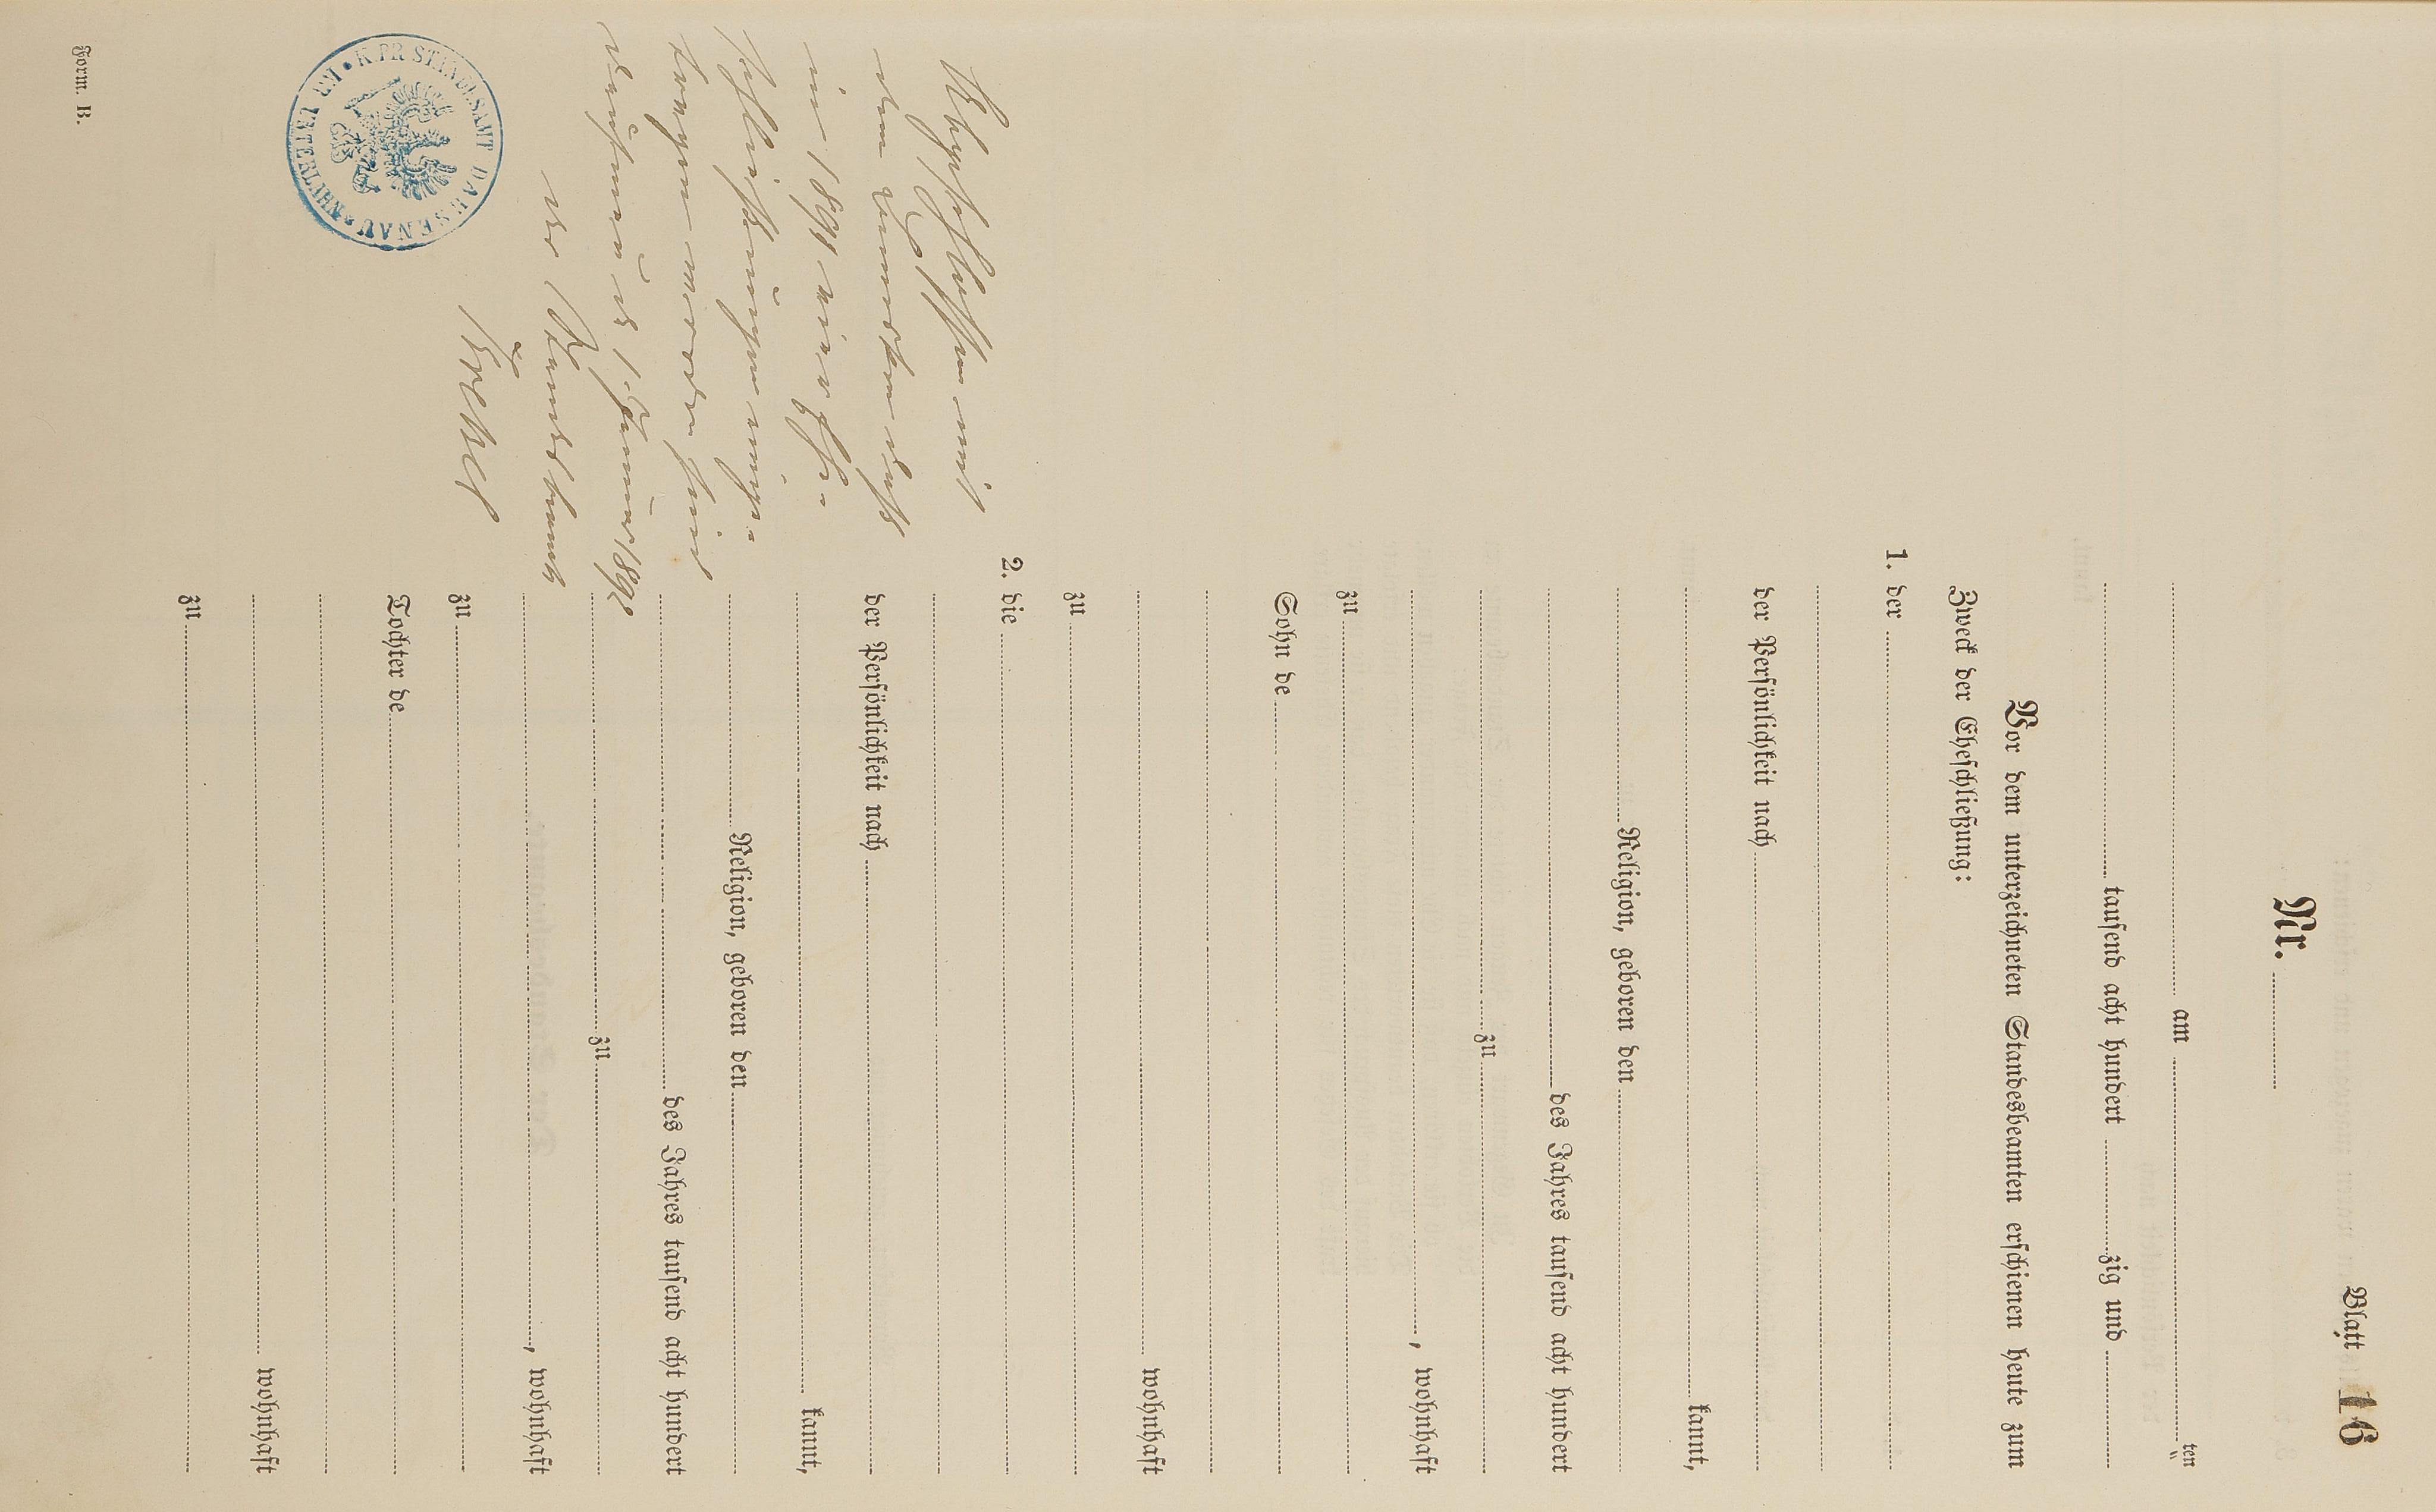 Blatt 16
Nr.
am ten
tausend acht hundert zig und
Vor dem unterzeichneten Standesbeamten erschienen heute zum
Zweck der Eheschließung:
1. der
der Persönlichkeit nach
kannt,
Religion, geboren den
des Jahres tausend acht hundert
zu
, wohnhaft
zu
Sohn de
wohnhaft
zu
2. die
der Persönlichkeit nach
kannt,
Religion, geboren den
des Jahres tausend acht hundert
zu
, wohnhaft
zu
Tochter de
wohnhaft
zu
Abgeschlossen mit
dem Bemerken daß
in 1891 vier Ehe-
schließungen einge-
tragen worden sind
Dausenau d 1. Januar 1892
Der Standesbeamte
Krekel
K.PR STANDESAMT DAUSENAU * KR UNTERLAHN
Form. B.